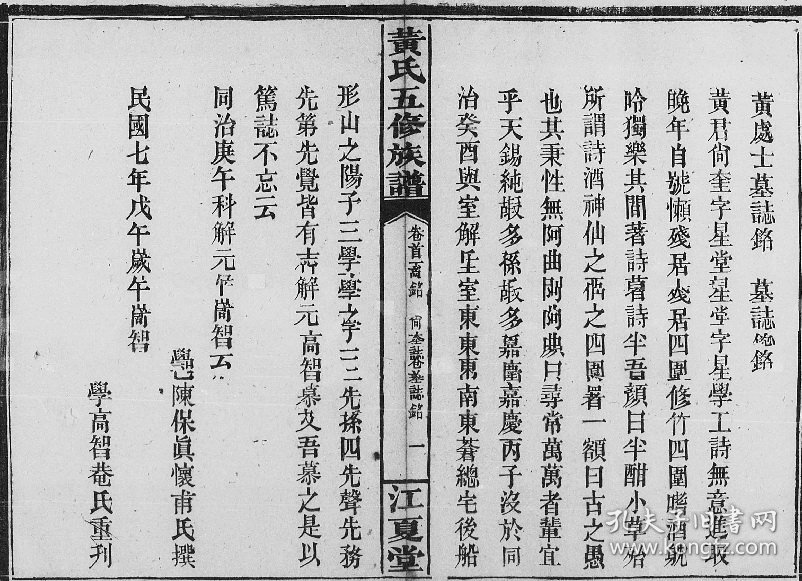 黃處士墓誌銘　墓誌銘
黃君尚奎字星堂星堂字星學工詩無意進取
晚年自號懶殘居殘居四圍修竹四圍嗜酒號
吟獨樂其間著詩著詩半吾顏曰半酣小草殆
所謂詩酒神仙之酒之四圍署一額曰古之愚
也其秉性無阿曲剛尚典曰尋常萬萬者輩宜
乎天錫純嘏多孫嘏多嘉慶嘉慶丙子沒於同
治癸酉與室解
室東東
南東
總宅後船
黃氏五修族譜
卷首
銘
誌
墓誌銘
一
江夏堂
形山之陽子三學學之字三三先孫四先聲先務
先第先覺皆有志解元高智慕友吾慕之是以
篤誌不忘云
同治庚午科解元
智云
陳保眞懷甫氏撰
民國七年戊午歲午
智
學高智菴氏重刋
孔夫子旧书网
www.kongfz.com